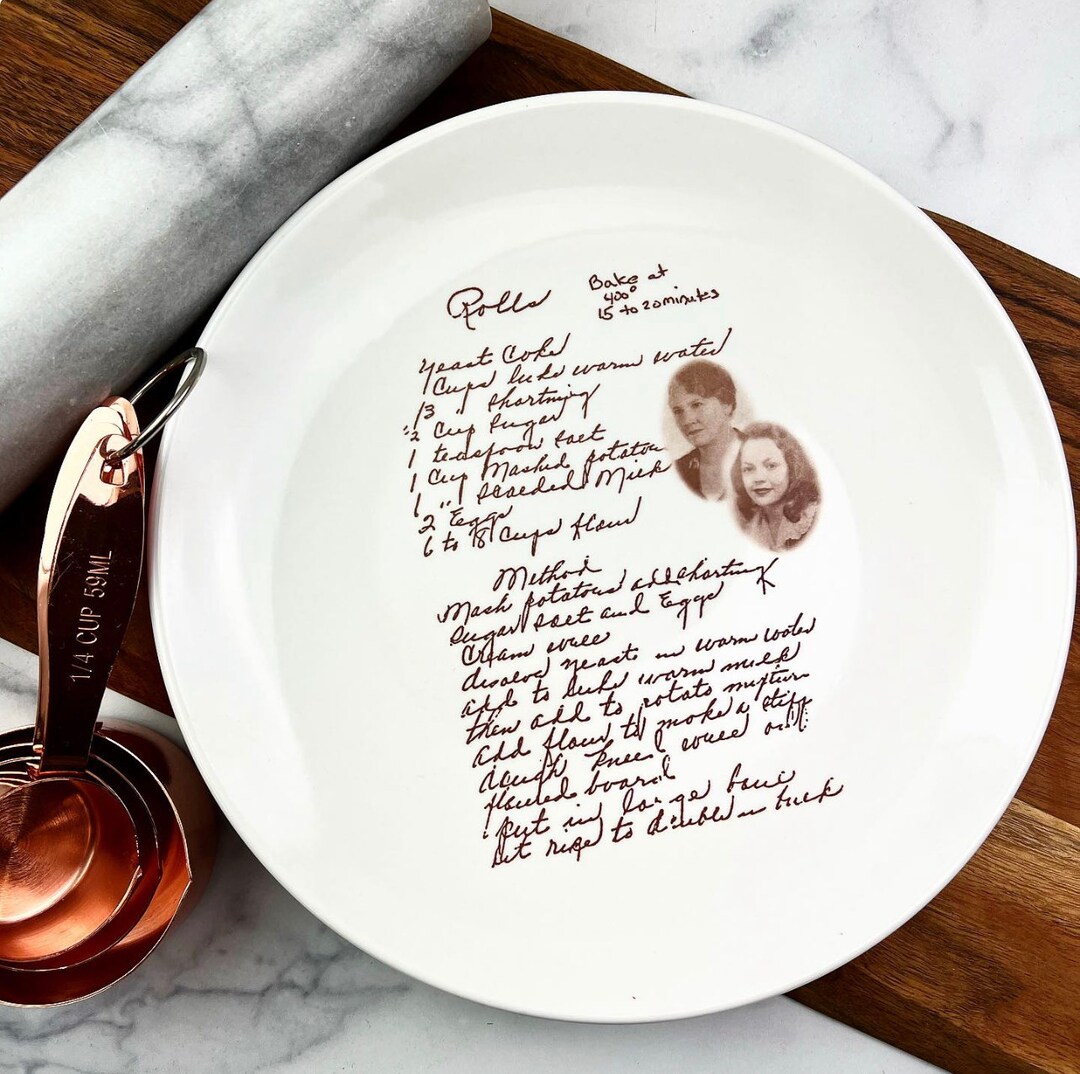 Rolls
Bake at
400°
15 to 20 minutes
Yeast Coke
1 Cups luke warm water
/3 " shortning
2 Cup Sugar
1 teaspoon salt
1 Cup Mashed potatoes
1 " scalded Milk
2 Eggs
6 to 8 Cups flour
Method
Mash potatoes add shortning
Sugar salt and Eggs
Cream well
desolve yeast in warm water
add to luke warm milk
then add to potato mixture
add flour to make a stiff
dough kneed well on
floured board
put in large bowl
let rise to double in bulk
1/4 CUP 59ML